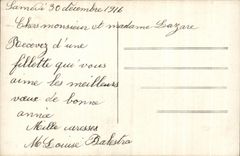 Samedi 30 décembre 1916
Chers monsieur et madame Lazare
Recevez d'une
fillette qui vous
aime les meilleurs
vœux de bonne
année
Mille caresses
M Louise Balestra